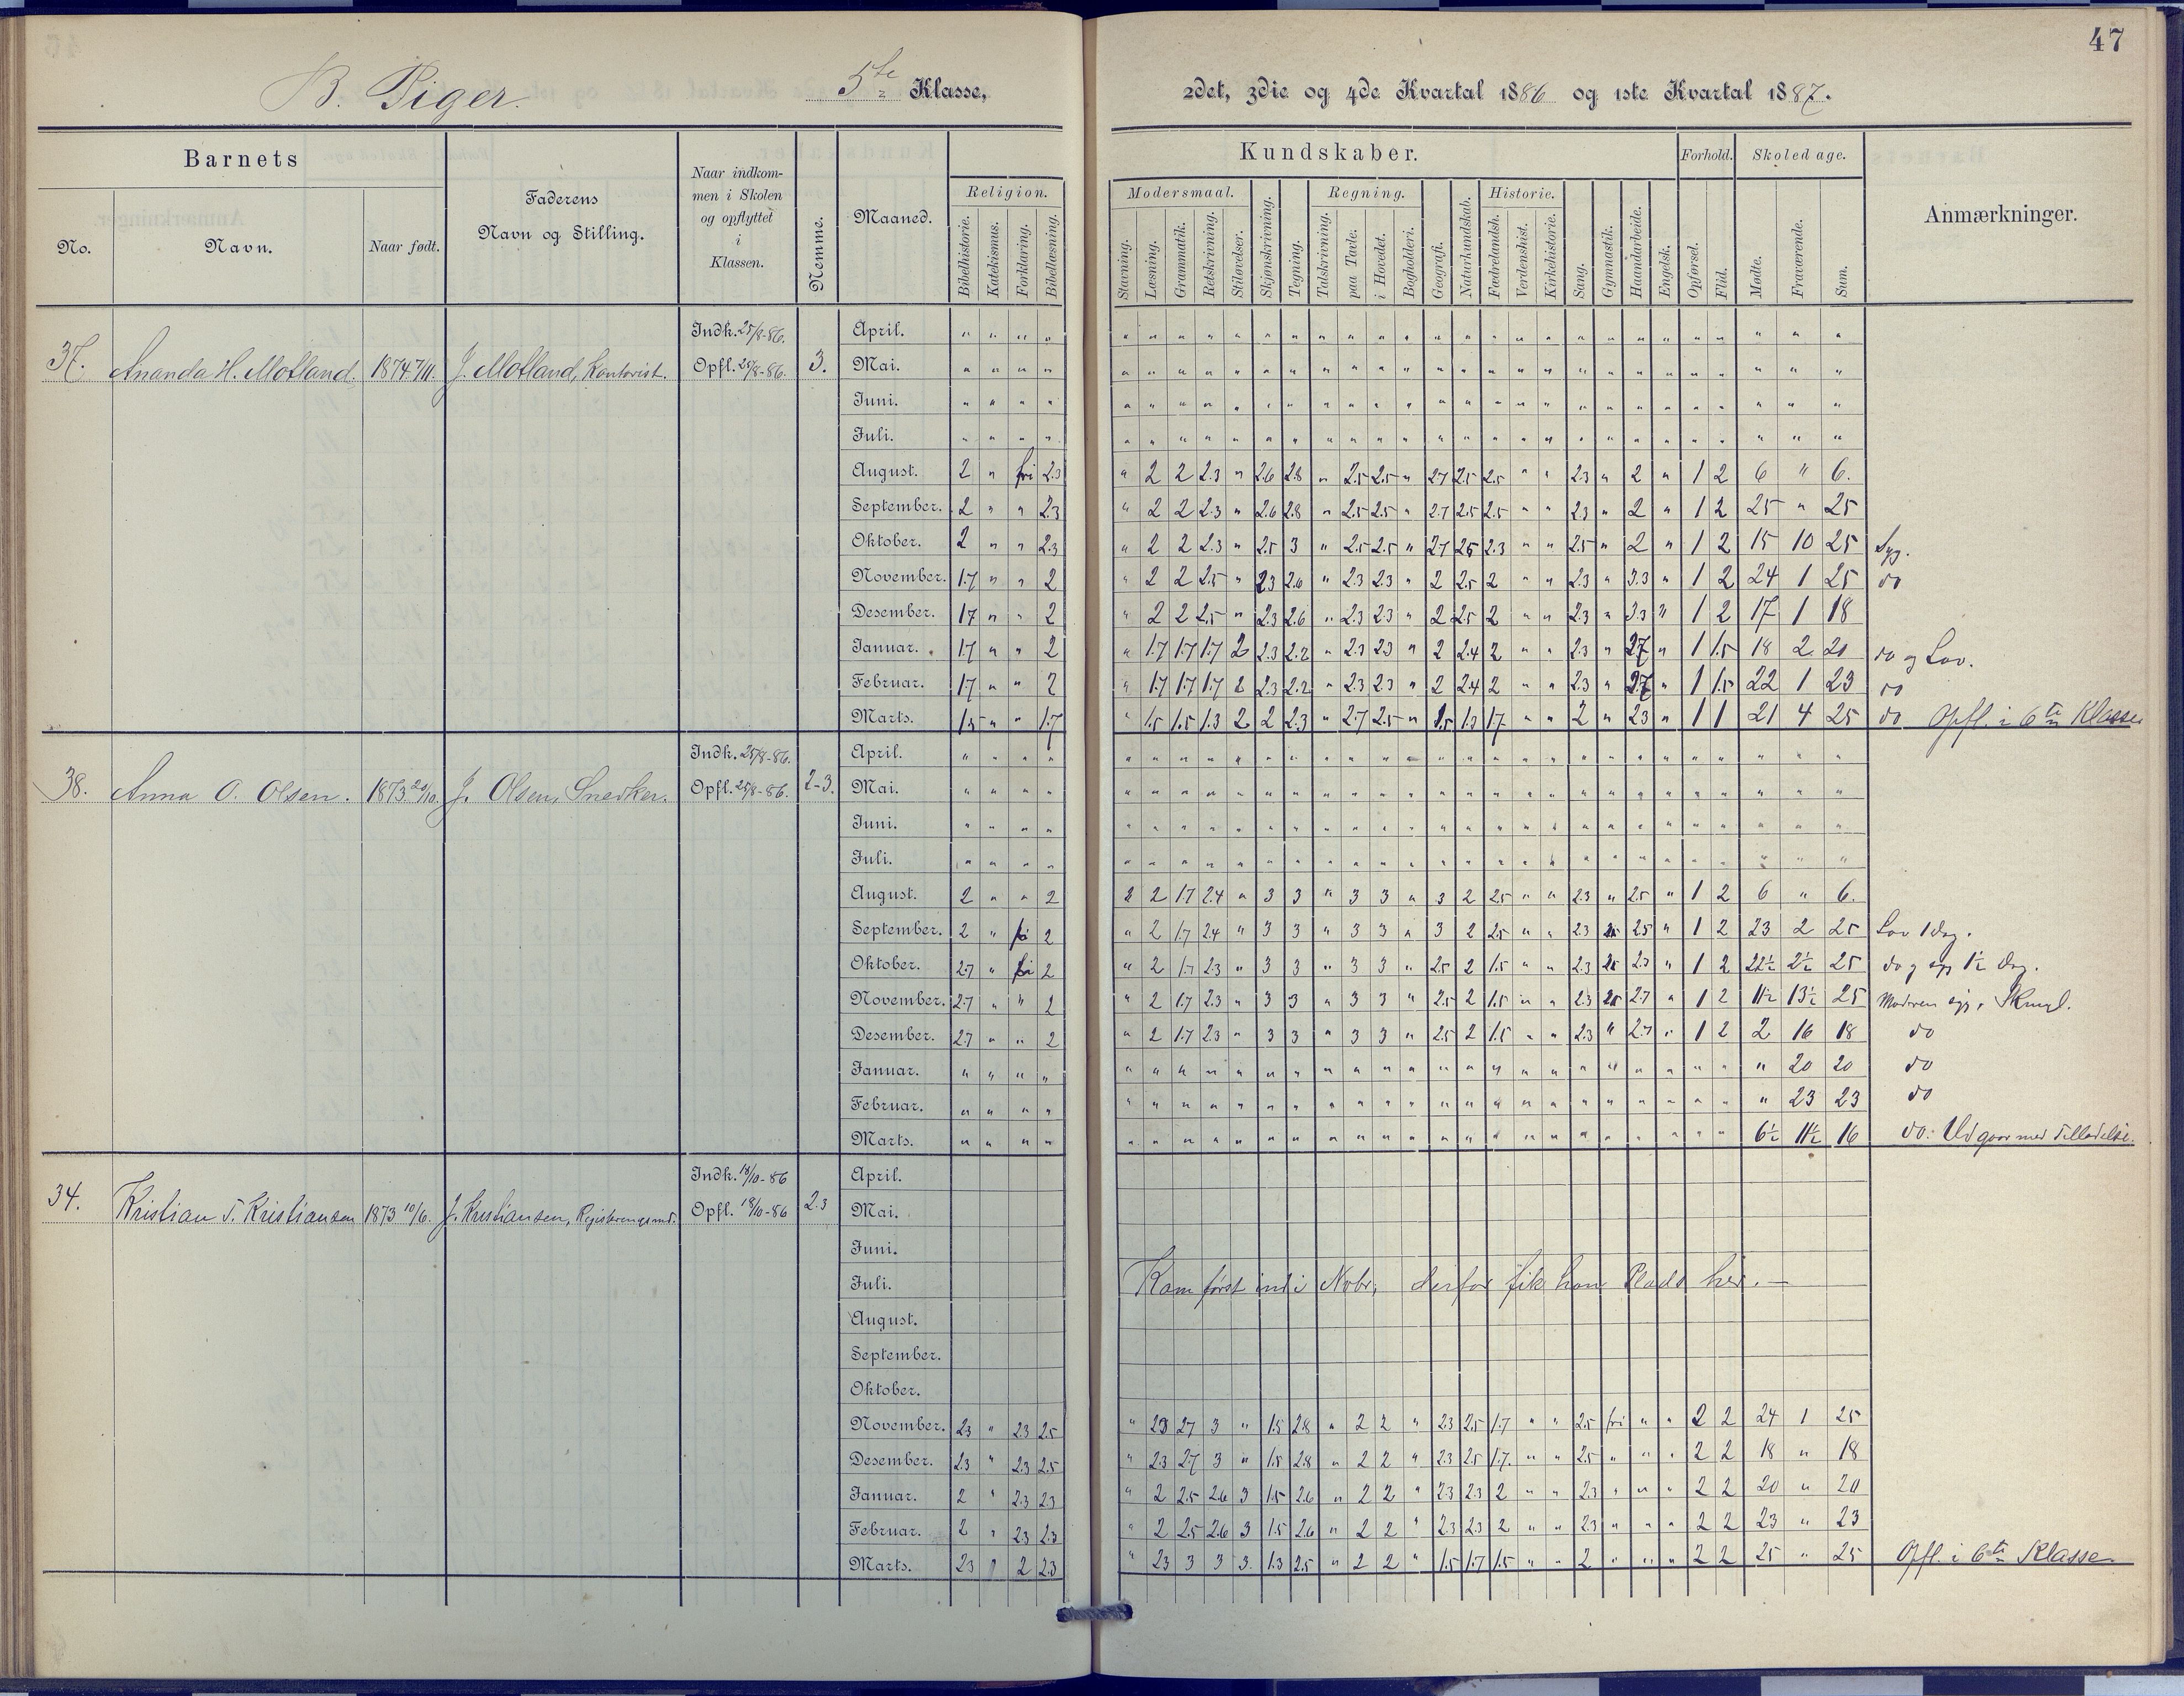 47
B. Piger. 5te Klasse, 2det, 3die og 4de Kvartal 1886 og 1ste Kvartal 1887.
Barnets
No. Navn. Naar født.
Faderens Navn og Stilling.
Naar indkom-
men i Skolen
og opflyttet
i
Klassen.
Nemme.
Maaned.
Kundskaber.
Religion.
Bibelhistorie. Katekismus. Forklaring. Bibellæsning.
Modersmaal.
Stavning. Læsning. Grammatik. Retskrivning. Stiløvelser.
Skjønskrivning. Tegning.
Regning.
Talskrivning. paa Tavle. i Hovedet. Bogholderi.
Geografi. Naturkundskab.
Historie.
Fædrelandsh. Verdenshist. Kirkehistorie.
Sang. Gymnastik. Haandarbeide. Engelsk.
Forhold.
Opførsel. Flid.
Skoledage.
Mødte. Fraværende. Sum.
Anmærkninger.
37. Ananda H. Motland. 1874 7/11. J. Motland, Kontorist. Indk. 25/8-86. Opfl. 25/8-86. 3.
April. " " " " " " " " " " " " " " " " " " " " " " " " " " " " "
Mai. " " " " " " " " " " " " " " " " " " " " " " " " " " " " "
Juni. " " " " " " " " " " " " " " " " " " " " " " " " " " " " "
Juli. " " " " " " " " " " " " " " " " " " " " " " " " " " " " "
August. 2 " fri 2.3 " 2 2 2.3 " 2.6 2.8 " 2.5 2.5 " 2.7 2.5 2.5 " " 2.3 " 2 " 1 2 6 " 6.
September. 2 " " 2.3 " 2 2 2.3 " 2.6 2.8 " 2.5 2.5 " 2.7 2.5 2.5 " " 2.3 " 2 " 1 2 25 " 25
Oktober. 2 " " 2.3 " 2 2 2.3 " 2.5 3 " 2.5 2.5 " 2.7 2.5 2.3 " " 2.5 " 2 " 1 2 15 10 25 Syg.
November. 1.7 " " 2 " 2 2 2.5 " 2.3 2.6 " 2.3 2.3 " 2 2.5 2 " " 2.3 " 3.3 " 1 2 24 1 25 do
Desember. 1.7 " " 2 " 2 2 2.5 " 2.3 2.6 " 2.3 2.3 " 2 2.5 2 " " 2.3 " 3.3 " 1 2 17 1 18
Januar. 1.7 " " 2 " 1.7 1.7 1.7 2 2.3 2.2 " 2.3 2.3 " 2 2.4 2 " " 2.3 " 2.7 " 1 1.5 18 2 20 do og Lov.
Februar. 1.7 " " 2 " 1.7 1.7 1.7 2 2.3 2.2 " 2.3 2.3 " 2 2.4 2 " " 2.3 " 2.7 " 1 1.5 22 1 23 do
Marts. 1.5 " " 1.7 " 1.5 1.5 1.3 2 2 2.3 " 2.7 2.5 " 1.5 1.3 1.7 " " 2 " 2.3 " 1 1 21 4 25 do Opfl. i 6te Klasse
38. Anna O. Olsen. 1873 20/10. J. Olsen, Snedker. Indk. 25/8-86. Opfl. 25/8-86. 2-3.
April. " " " " " " " " " " " " " " " " " " " " " " " " " " " " "
Mai. " " " " " " " " " " " " " " " " " " " " " " " " " " " " "
Juni. " " " " " " " " " " " " " " " " " " " " " " " " " " " " "
Juli. " " " " " " " " " " " " " " " " " " " " " " " " " " " " "
August. 2 " " 2 2 2 1.7 2.4 " 3 3 " 3 3 " 3 2 2.5 " " 2.3 " 2.5 " 1 2 6 " 6.
September. 2 " 2 " 2 1.7 2.4 " 3 3 " 3 3 " 3 2 2.5 " " 2.3 2.5 " 1 2 23 2 25 Lov 1 dag.
Oktober. 2.7 " 2 " 2 1.7 2.3 " 3 3 " 3 3 " 2.5 2 1.5 " " 2.3 2.3 " 1 2 22½ 2½ 25 do og syg 1½ dag.
November. 2.7 " " 2 " 2 1.7 2.3 " 3 3 " 3 3 " 2.5 2 1.5 " " 2.3 2.7 " 1 2 11½ 13½ 25 Modren syg,
Desember. 2.7 " " 2 " 2 1.7 2.3 " 3 3 " 3 3 " 2.5 2 1.5 " " 2.3 " 2.7 " 1 2 2 16 18 do
Januar. " " " " " " " " " " " " " " " " " " " " " " " " " " " 20 20 do
Februar. " " " " " " " " " " " " " " " " " " " " " " " " " " " 23 23 do
Marts. " " " " " " " " " " " " " " " " " " " " " " " " " " 6½ 11½ 16 do: Udgaar med Tilladelse.
34. Kristian T. Kristiansen 1873 10/6. J. Kristiansen, Indk. 18/10-86 Opfl. 18/10-86 2.3
April.
Mai.
Juni.
Juli. Kom først ind i Novbr, derfor fik han Plads her. —
August.
September.
Oktober.
November. 2.3 " 2.3 2.5 " 2.3 2.7 3 " 1.5 2.8 " 2 2 " 2.3 2.5 1.7 " " 2.5 fri " " 2 2 24 1 25
Desember. 2.3 " 2.3 2.5 " 2.3 2.7 3 " 1.5 2.8 " 2 2 " 2.3 2.5 1.7 " " 2.5 " " " 2 2 18 " 18
Januar. 2 " 2.3 2.3 " 2 2.5 2.6 3 1.5 2.6 " 2 2 " 2.3 2.3 2 " " 2.3 " " " 2 2 20 " 20
Februar. 2 " 2.3 2.3 " 2 2.5 2.6 3 1.5 2.6 " 2 2 " 2.3 2.3 2 " " 2.3 " " " 2 2 23 " 23
Marts. 2.3 " 2 2.3 " 2.3 3 3 3. 1.3 2.5 " 2 2 " 1.5 1.7 1.5 " " 2 " " " 2 2 25 " 25 Opfl. i 6te Klasse.